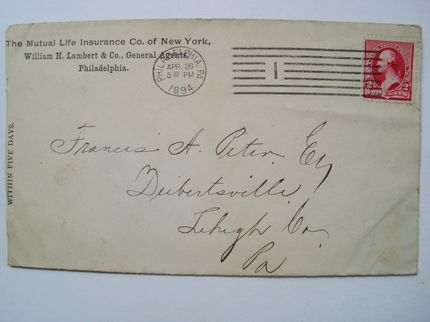 The Mutual Life Insurance Co. of New York,
William H. Lambert & Co., General Agents,
Philadelphia.
PHILADELPHIA, PA
APR. 26
5 PM
1894
1
2 2
WITHIN FIVE DAYS.
Francis A. Peter, Esq
Deibertsville
Lehigh Co.
Pa